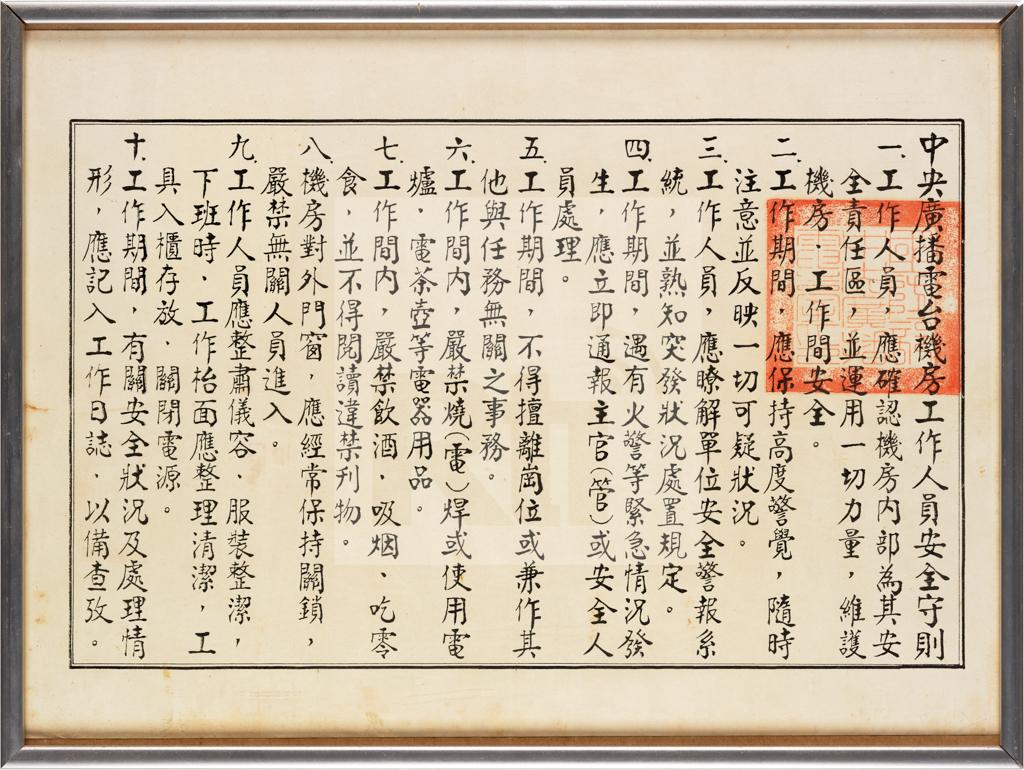 中央廣播電台機房工作人員安全守則
一.工作人員，應確認機房內部為其安
全責任區，並運用一切力量，維護
機房.工作間安全。
二.工作期間，應保持高度警覺，隨時
注意並反映一切可疑狀況。
三.工作人員，應瞭解單位安全警報系
統，並熟知突發狀況處置規定。
四.工作期間，遇有火警等緊急情況發
生，應立即通報主官(管)或安全人
員處理。
五.工作期間，不得擅離崗位或兼作其
他與任務無關之事務。
六.工作間內，嚴禁燒(電)焊或使用電
爐，電茶壺等電器用品。
七.工作間內，嚴禁飲酒，吸烟、吃零
食，並不得閱讀違禁刊物。
八.機房對外門窗，應經常保持關鎖，
嚴禁無關人員進入。
九.工作人員應整肅儀容.服裝整潔，
下班時.工作枱面應整理清潔，工
具入櫃存放.關閉電源。
十.工作期間，有關安全狀況及處理情
形，應記入工作日誌.以備查攷。